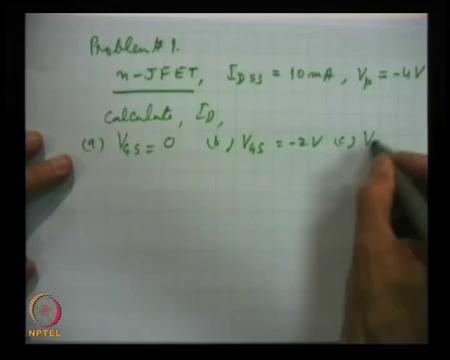 Problem # 1.
n-JFET, I_DSS = 10mA, Vp = -4V
Calculate, I_D,
(a) V_GS = 0 (b) V_GS = -2V (c) V
NPTEL